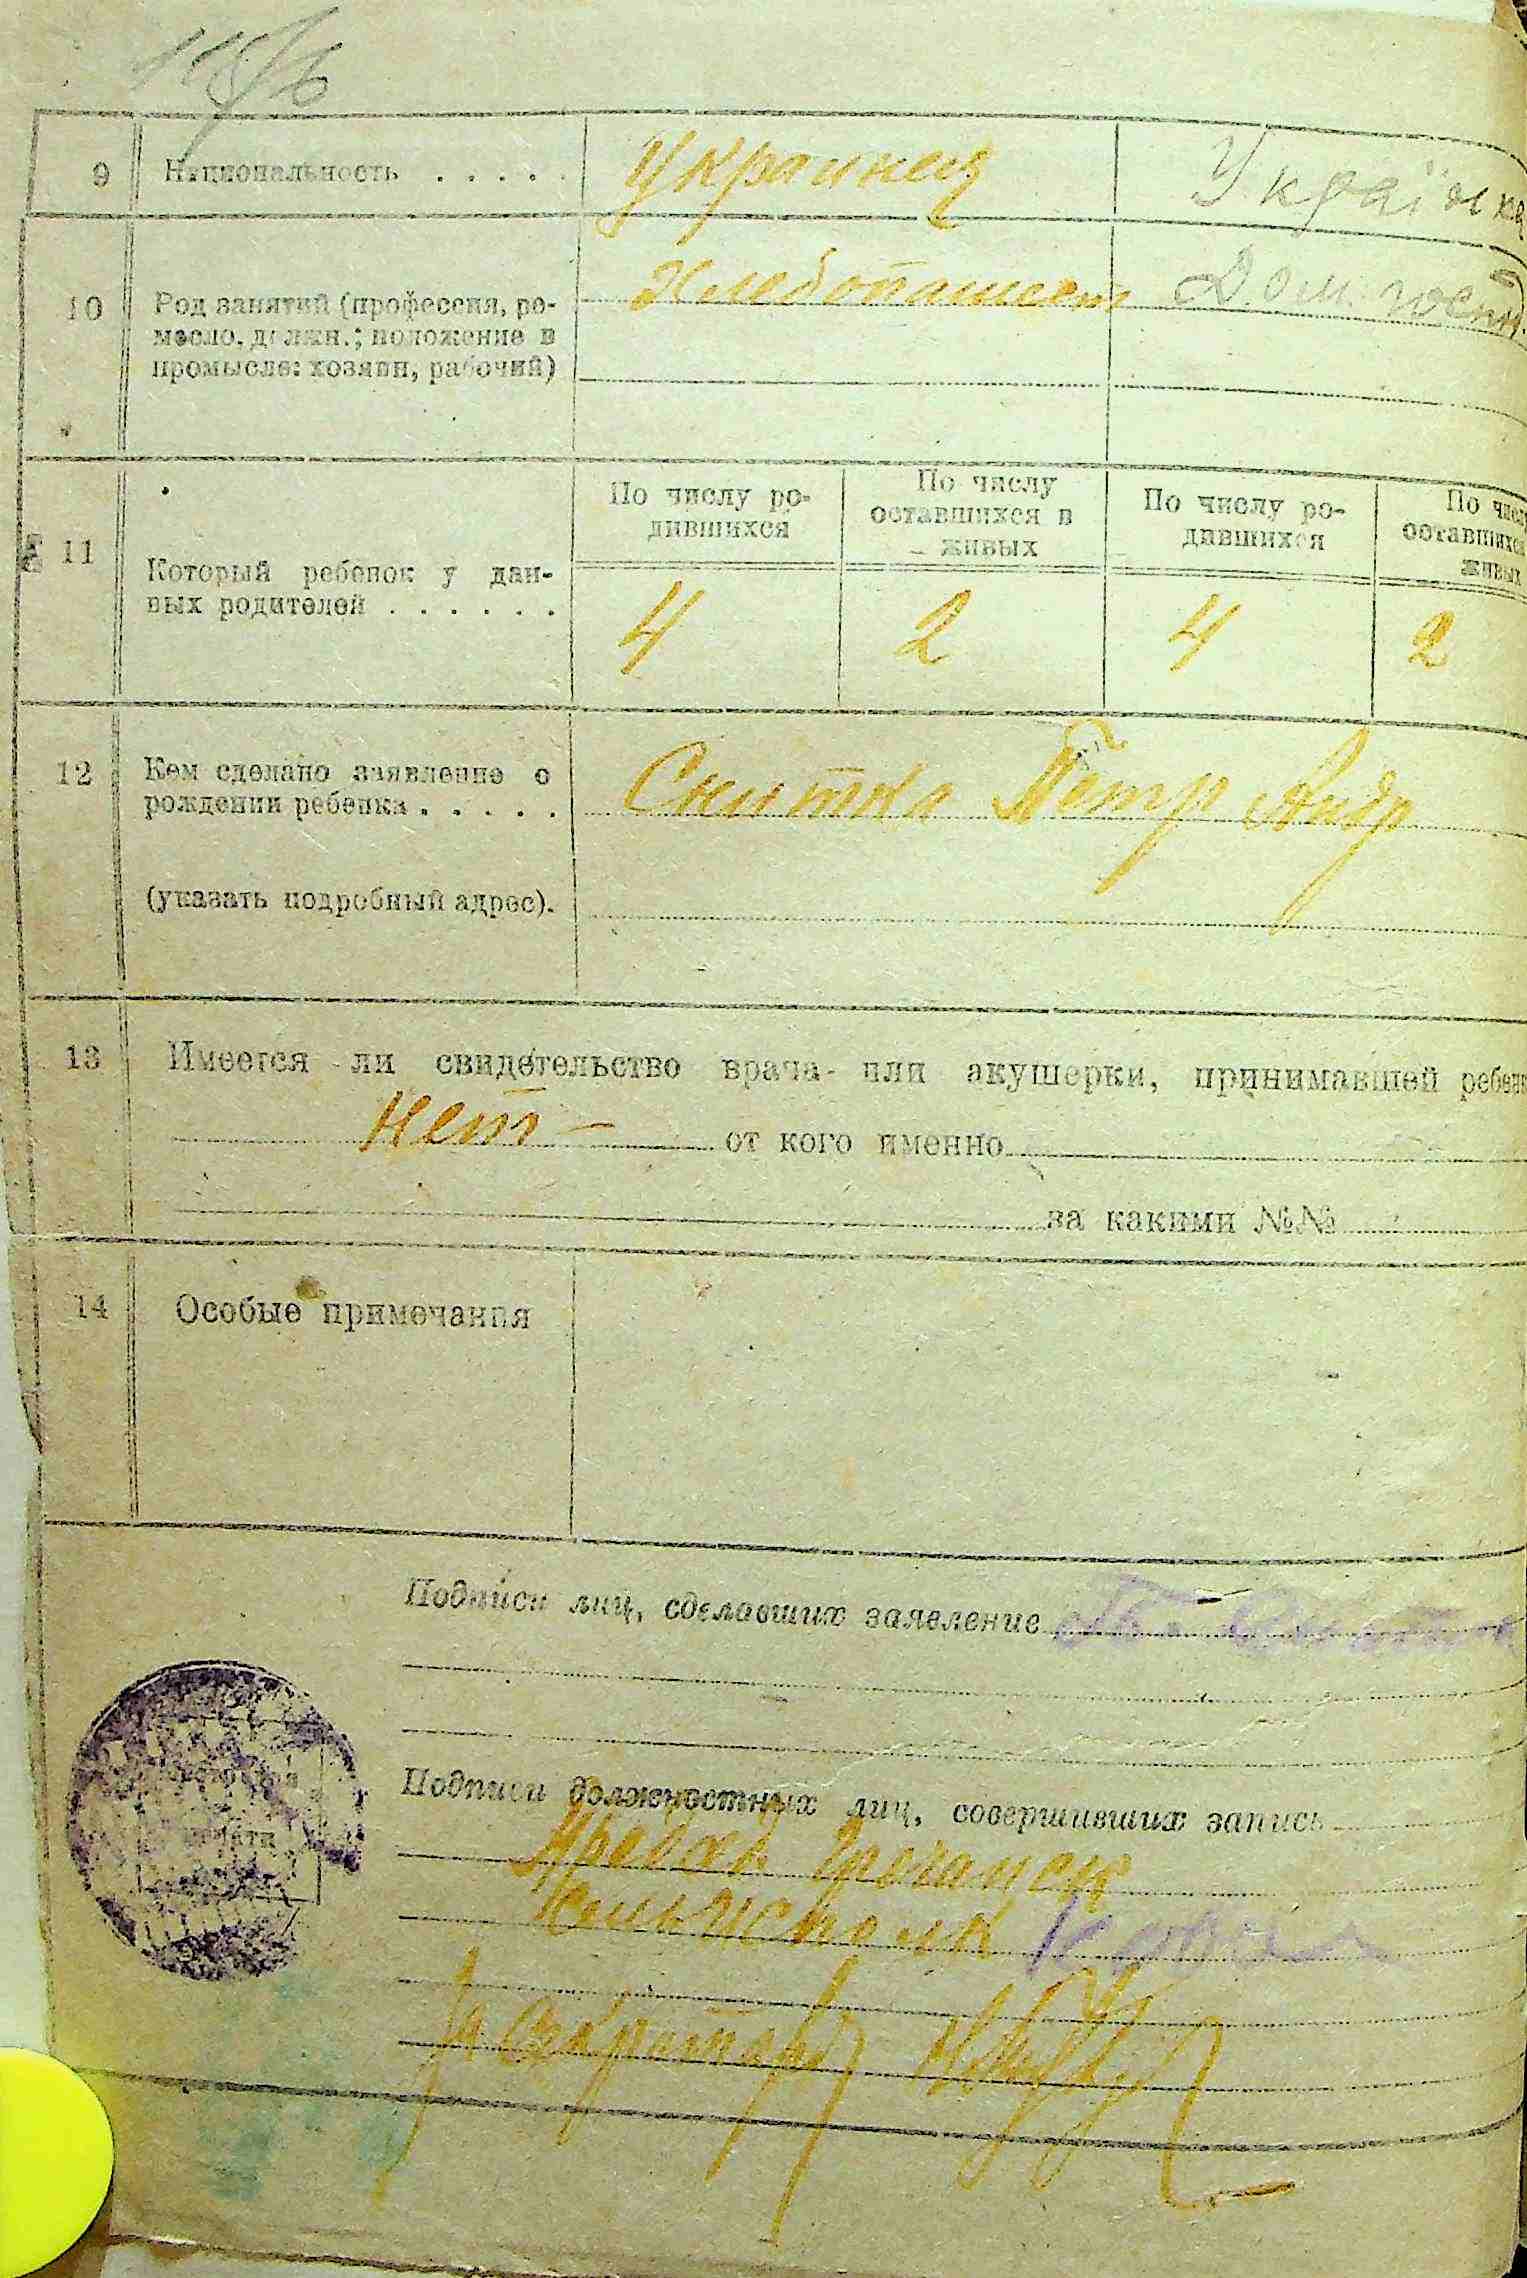 9 Национальность . . . . . Украинец Українка
10 Род занятий (профессия, ре-
месло, должн.; положение в
промысле: хозяин, рабочий)
Хлебопашест Дом. госп.
11 Который ребенок у дан-
ных родителей . . . . . .
По числу ро-
дившихся
По числу
оставшихся в
живых
По числу ро-
дившихся
По числ
оставшихся
живых
4 2 4 2
12 Кем сделано заявление о
рождении ребенка . . . . .
(указать подробный адрес).
Скитка Петр Андр
13 Имеется ли свидетельство врача или акушерки, принимавшей ребен
Нет — от кого именно
за какими №№
14 Особые примечания
Подписи лиц, сделавших заявление
Подписи должностных лиц, совершивших запись
Секретарь